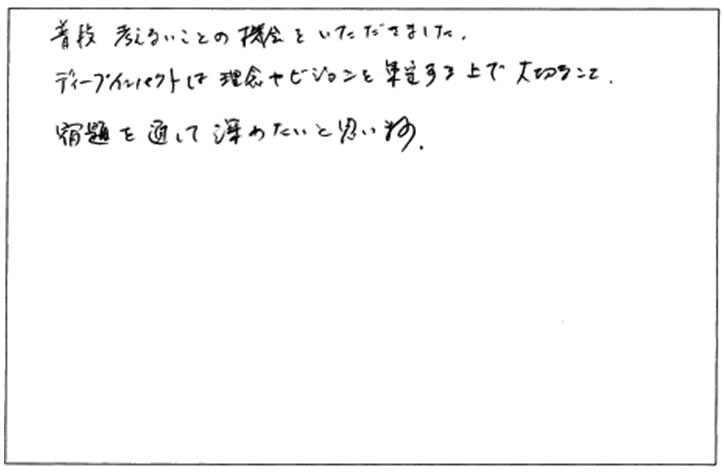 普段考えないことの機会をいただきました。
ディープインパクトは理念やビジョンを策定する上で大切なこと。
宿題を通して深めたいと思います。